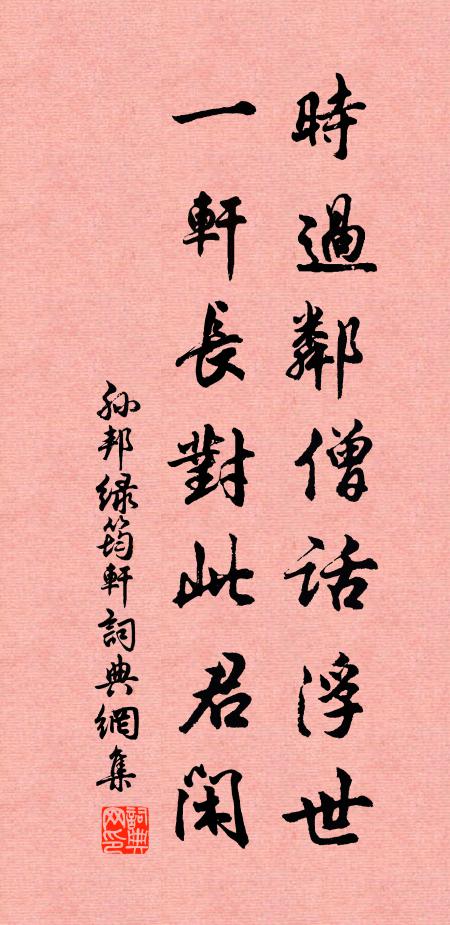 時過鄰僧話浮世
一軒長對此君閑
孙邦绿筠軒詞典網集
詞典網印